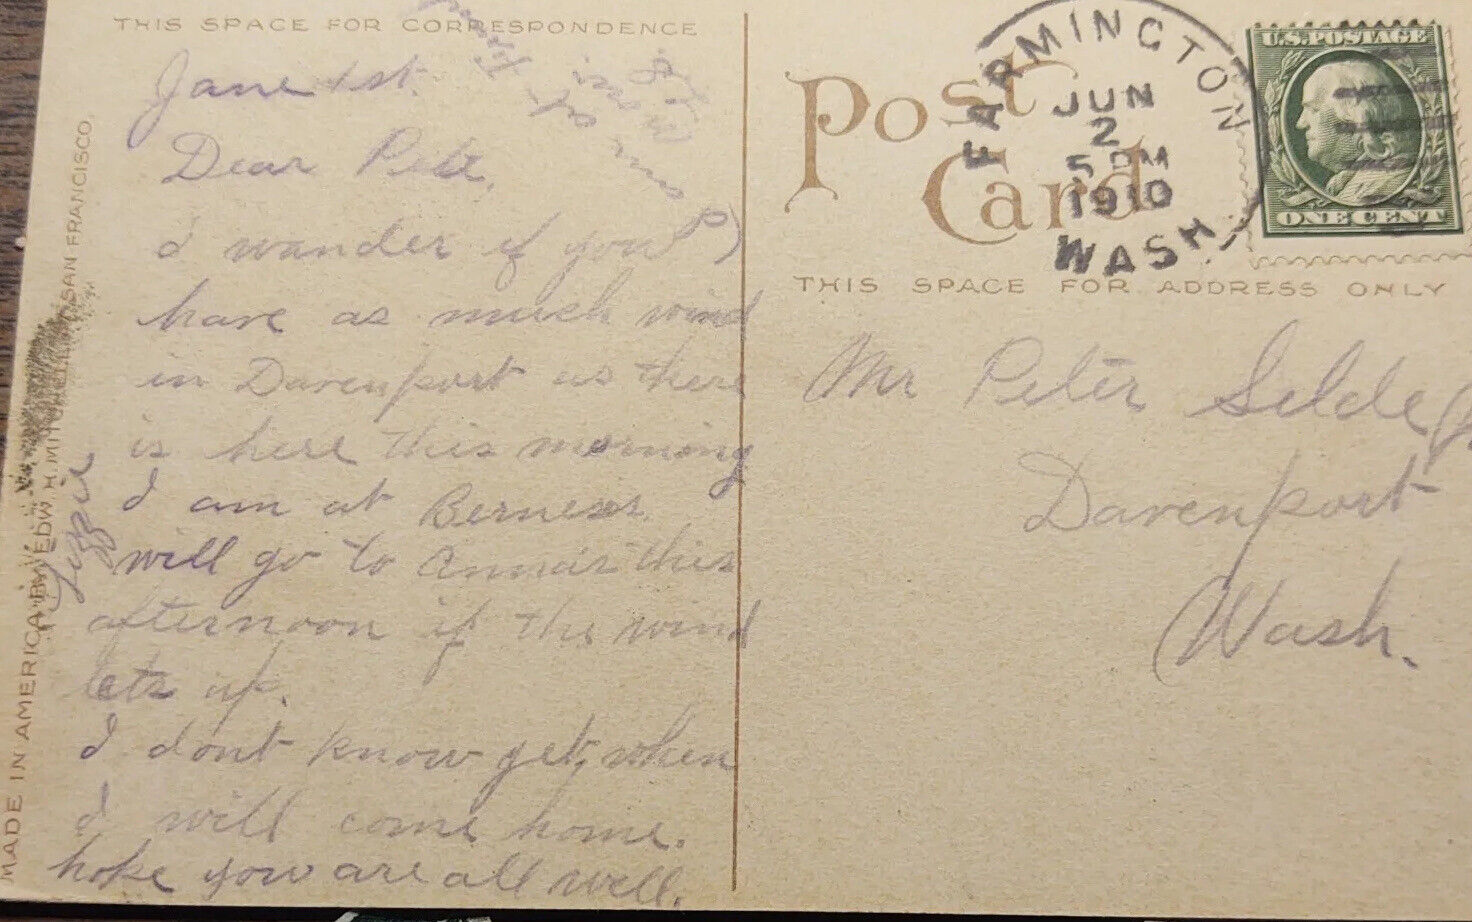 THIS SPACE FOR CORRESPONDENCE
June 1st.
Dear Pete,
I wander if you
have as much wind
in Davenport as there
is here this morning
I am at Berness.
will go to Annas this
afternoon if the wind
lets up.
I dont know yet, when
I will come home.
hope you are all well.
Lizzie
MADE IN AMERICA BY EDW. H. MITCHELL, SAN FRANCISCO.
Post
Card
FARMINGTON
JUN
2
5 PM
1910
WASH.
U.S. POSTAGE
ONE CENT
THIS SPACE FOR ADDRESS ONLY
Mr Peter Selde
Davenport
Wash.